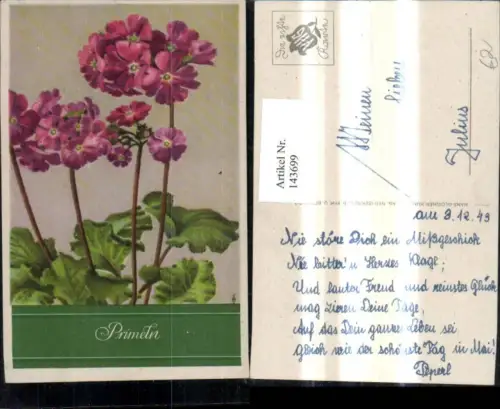 Primeln
Artikel Nr.
143699
Die echte
Meinen
lieben
Julius
62
am 3.12.43
Nie störe Dich ein Mißgeschick
Nie bitter'n Herzens Klage;
Und lauter Freud und reinstes Glück
mag zieren Deine Tage,
Auf das Dein ganzes Leben sei
gleich wie der schönste Tag in Mai!
Peperl